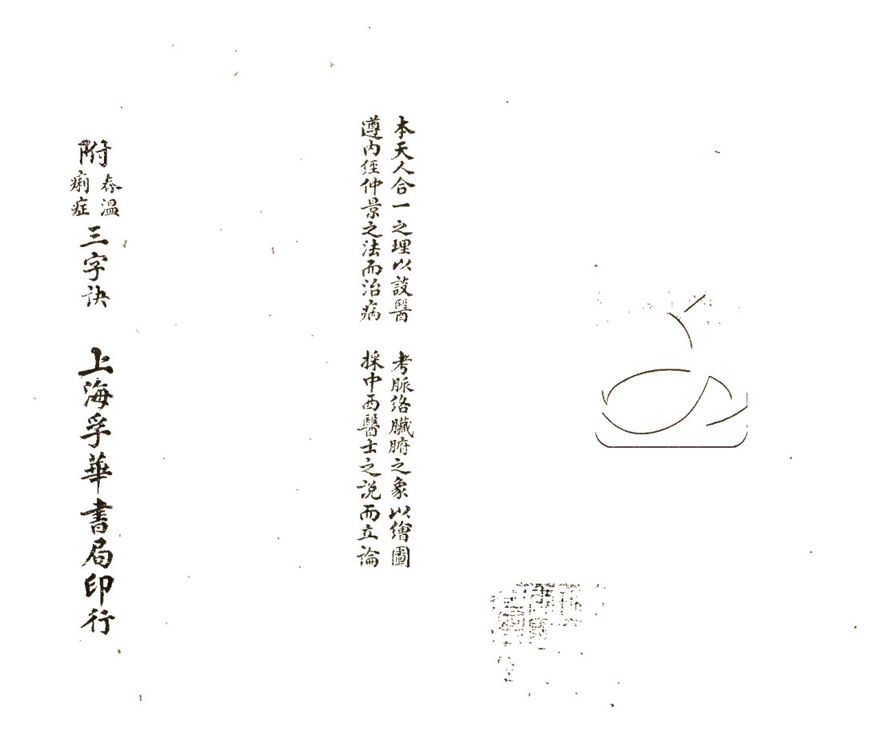 本天人合一之理以設醫　考脈絡臟腑之象以繪圖
遵內經仲景之法而治病　採中西醫士之說而立論
附春溫痢症三字訣　上海孚華書局印行